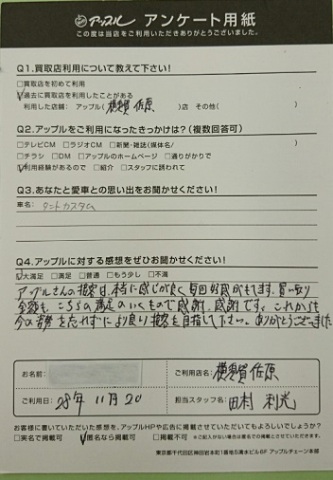 アップル アンケート用紙
この度は当店をご利用いただきありがとうございました。
Q1.買取店利用について教えて下さい!
□買取店を初めて利用
☑過去に買取店を利用したことがある
利用した店舗: アップル(横須賀佐原)店 その他( )
Q2.アップルをご利用になったきっかけは?(複数回答可)
□テレビCM □ラジオCM □新聞・雑誌(媒体名/ )
□チラシ □DM □アップルのホームページ □通りがかりで
☑利用経験があるので □紹介 □スタッフに誘われて
Q3.あなたと愛車との思い出をお聞かせください!
車名: タントカスタム
Q4.アップルに対する感想をぜひお聞かせください!
☑大満足 □満足 □普通 □もう少し □不満
アップルさんの接客は、本当に感じが良く、毎回好感がもてます。買い取り
金額も、こちらの満足のいくもので感謝、感謝です。これからも
今の姿勢を忘れずに、より良い接客を目指して下さい。ありがとうございました
お名前:
ご利用店名: 横須賀佐原
ご利用日: 28年 11月 20
担当スタッフ名: 田村 利光
お客様に書いていただいた感想を、アップルHPや広告に掲載させていただいてもよろしいでしょうか?
□実名で掲載可 ☑匿名なら掲載可 □掲載不可 ※ご記入がない場合は匿名での掲載とさせていただきます。
東京都千代田区神田岩本町1番地5清水ビル6F アップルチェーン本部